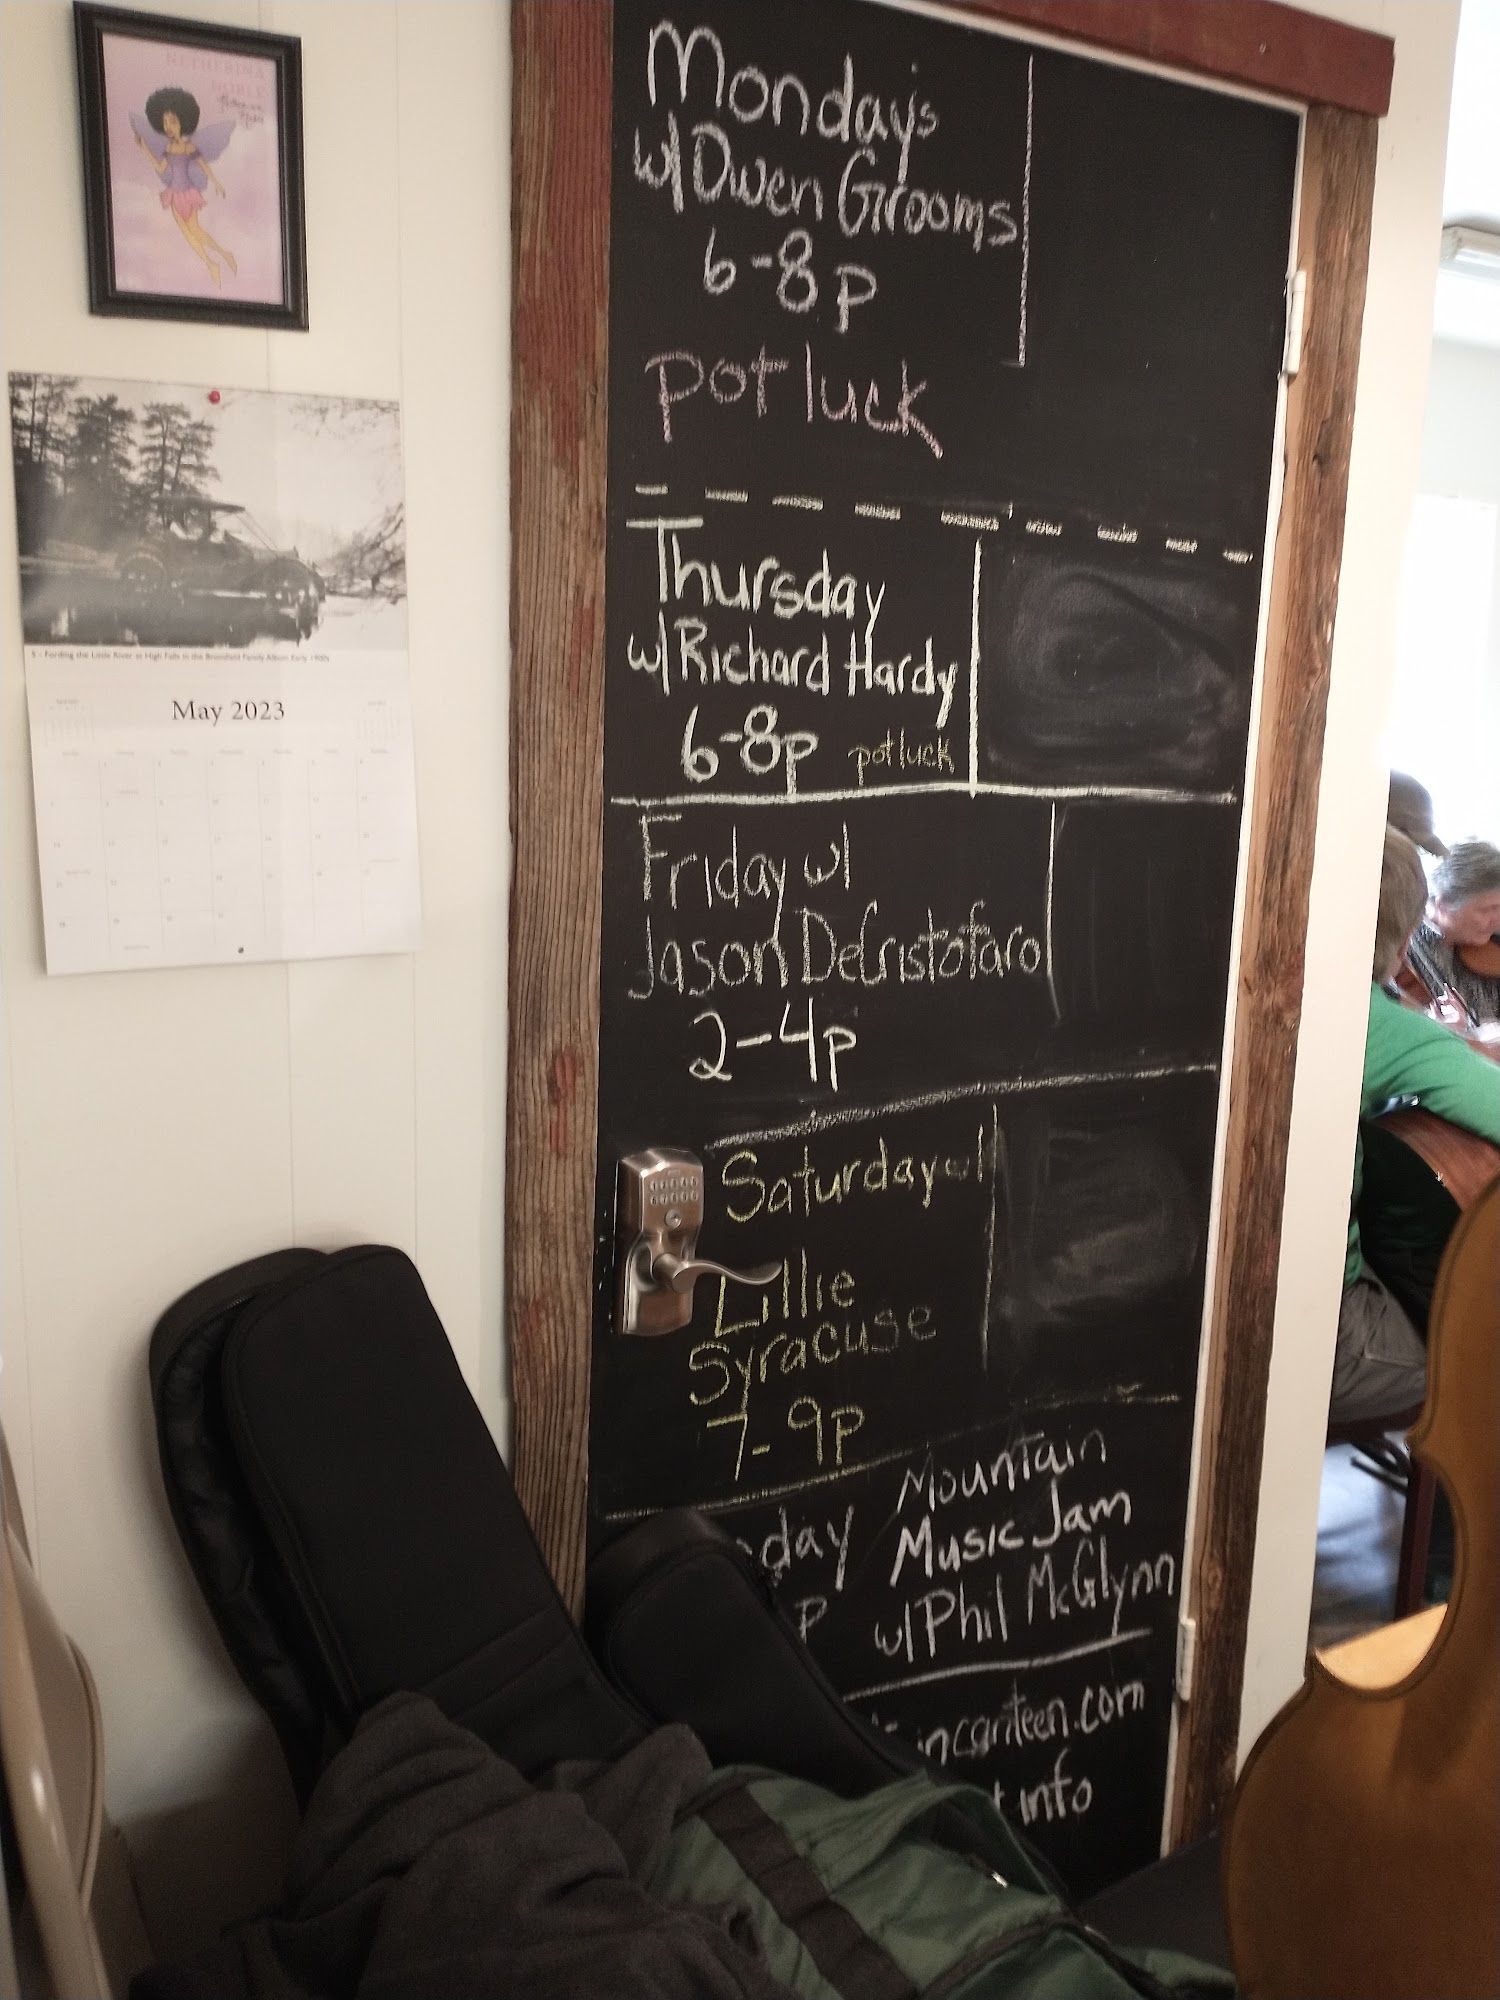 NETHERINA
NOBLE
5 - Fording the Little River at High Falls in the Broomfield Family Album Early 1900s
May 2023
Monday's
w/ Owen Grooms
6-8p
potluck
Thursday
w/ Richard Hardy
6-8p potluck
Friday w/
Jason DeCristofaro
2-4p
Saturday w/
Lillie
Syracuse
7-9p
day
P
Mountain
Music Jam
w/ Phil McGlynn
ncanteen.com
info